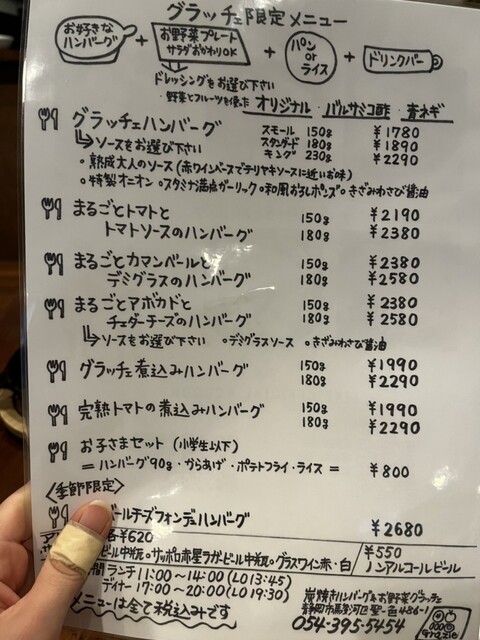 グラッチェ限定メニュー
お好きなハンバーグ + お野菜プレート サラダおかわりOK + パン or ライス + ドリンクバー
ドレッシングをお選び下さい
・野菜とフルーツを使った オリジナル ・バルサミコ酢 ・青ネギ
グラッチェハンバーグ スモール 150g ¥1780
→ソースをお選び下さい スタンダード 180g ¥1890
キング 230g ¥2290
。熟成大人のソース(赤ワインベースでテリヤキソースに近いお味)
。特製オニオン 。スタミナ満点ガーリック 。和風おろしポンズ 。きざみわさび醤油
まるごとトマトと 150g ¥2190
トマトソースのハンバーグ 180g ¥2380
まるごとカマンベールと 150g ¥2380
デミグラスのハンバーグ 180g ¥2580
まるごとアボカドと 150g ¥2380
チェダーチーズのハンバーグ 180g ¥2580
→ソースをお選び下さい 。デミグラスソース 。きざみわさび醤油
グラッチェ煮込みハンバーグ 150g ¥1990
180g ¥2290
完熟トマトの煮込みハンバーグ 150g ¥1990
180g ¥2290
お子さまセット (小学生以下)
=ハンバーグ90g・からあげ・ポテトフライ・ライス= ¥800
〈季節限定〉
ールチーズフォンデュハンバーグ ¥2680
¥620
ビール中瓶。サッポロ赤星ラガービール中瓶。グラスワイン赤・白
¥550
ノンアルコールビール
間 ランチ 11:00~14:00(LO13:45)
ディナー 17:00~20:00(LO19:30)
メニューは全て税込みです
炭焼きハンバーグ&お野菜グラッチェ
静岡市駿河区聖一色486-1
054-395-5454
grazie